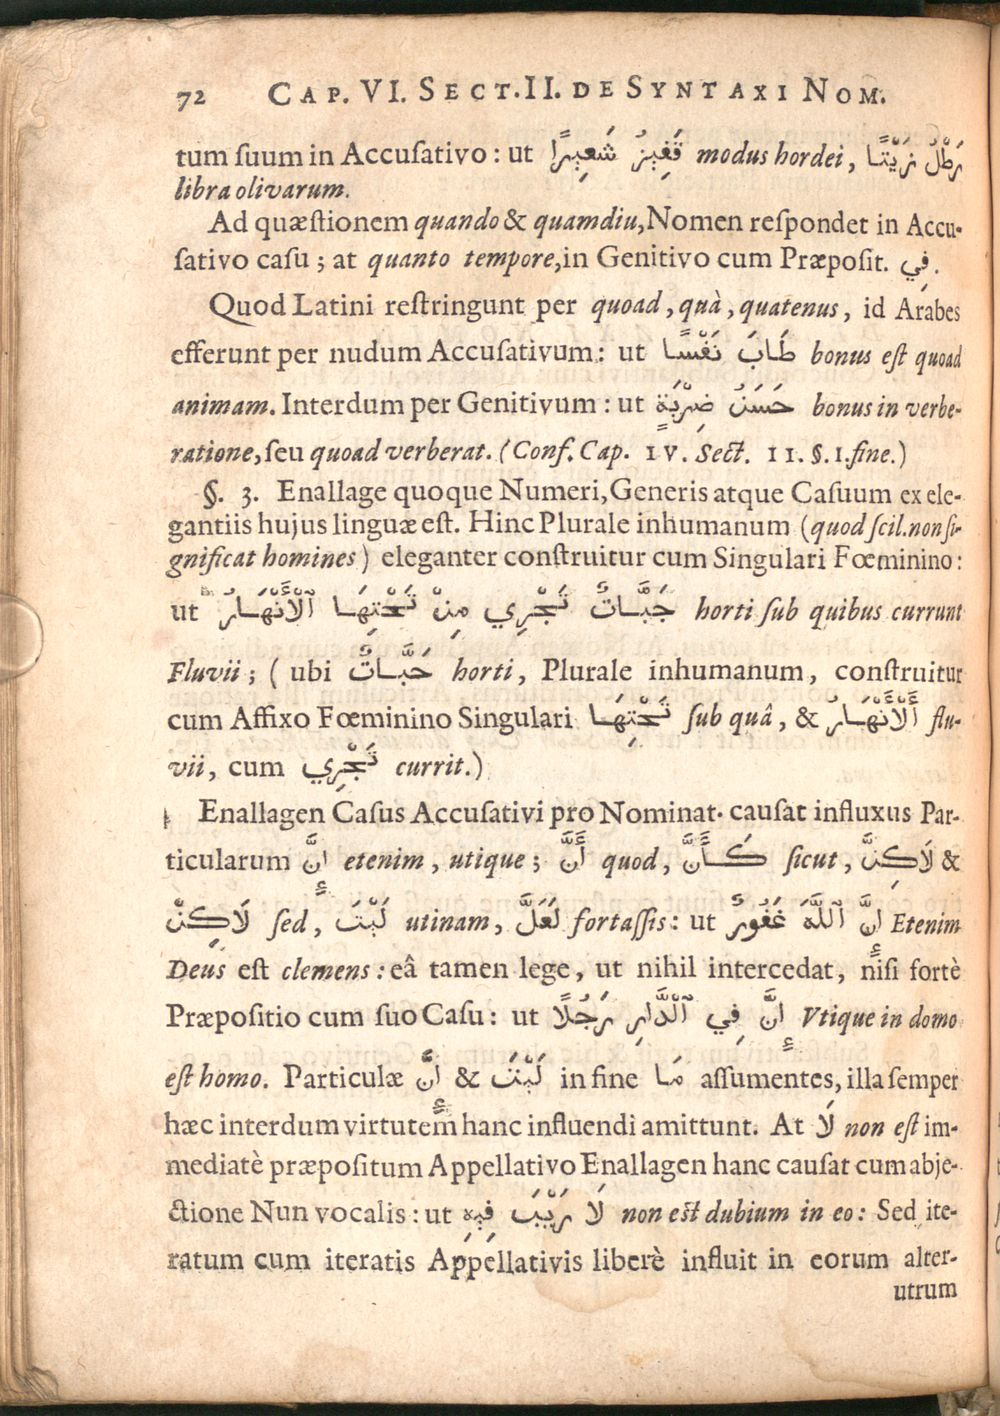 72 CAP. VI. SECT. II. DE SYNTAXI NOM.
tum ſuum in Accuſativo : ut قَفِيزُ شَعِيرًا modus hordei, رَطْلُ زَيْتًا
libra olivarum.
Ad quæſtionem quando & quamdiu, Nomen reſpondet in Accu-
ſativo caſu ; at quanto tempore, in Genitivo cum Præpoſit. فِي.
Quod Latini reſtringunt per quoad, quà, quatenus, id Arabes
efferunt per nudum Accuſativum : ut طَابَ نَفْسًا bonus eſt quoad
animam. Interdum per Genitivum : ut حَسَنُ ضِرْبَةٍ bonus in verbe-
ratione, ſeu quoad verberat. (Conf. Cap. IV. Sect. II. §. I. fine.)
§. 3. Enallage quoque Numeri, Generis atque Caſuum ex ele-
gantiis hujus linguæ eſt. Hinc Plurale inhumanum (quod ſcil. non ſi-
gnificat homines) eleganter conſtruitur cum Singulari Fœminino :
ut جَنَّاتٌ تَجْرِي مِنْ تَحْتِهَا ٱلْأَنْهَارُ horti ſub quibus currunt
Fluvii ; ( ubi جَنَّاتٌ horti, Plurale inhumanum, conſtruitur
cum Affixo Fœminino Singulari تَحْتِهَا ſub quâ, & أَلْأَنْهَارُ flu-
vii, cum تَجْرِي currit.)
Enallagen Caſus Accuſativi pro Nominat. cauſat influxus Par-
ticularum إِنَّ etenim, utique ; أَنَّ quod, كَأَنَّ ſicut, لَاكِنَّ &
لَاكِنْ ſed, لَيْتَ utinam, لَعَلَّ fortaſſis : ut إِنَّ ٱللَّهَ غَفُورٌ Etenim
Deus eſt clemens : eâ tamen lege, ut nihil intercedat, niſi fortè
Præpoſitio cum ſuo Caſu : ut إِنَّ فِي ٱلدَّارِ رَجُلًا Vtique in domo
eſt homo. Particulæ إِنَّ & لَيْتَ in fine مَا aſſumentes, illa ſemper
hæc interdum virtutem hanc influendi amittunt. At لَا non eſt im-
mediatè præpoſitum Appellativo Enallagen hanc cauſat cum abje-
ctione Nun vocalis : ut لَا رَيْبَ فِيهِ non eſt dubium in eo : Sed ite-
ratum cum iteratis Appellativis liberè influit in eorum alter-
utrum